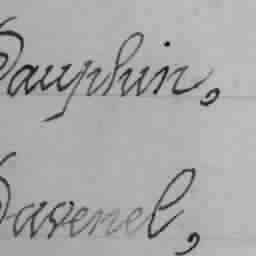 Dauphin,
Davenel,